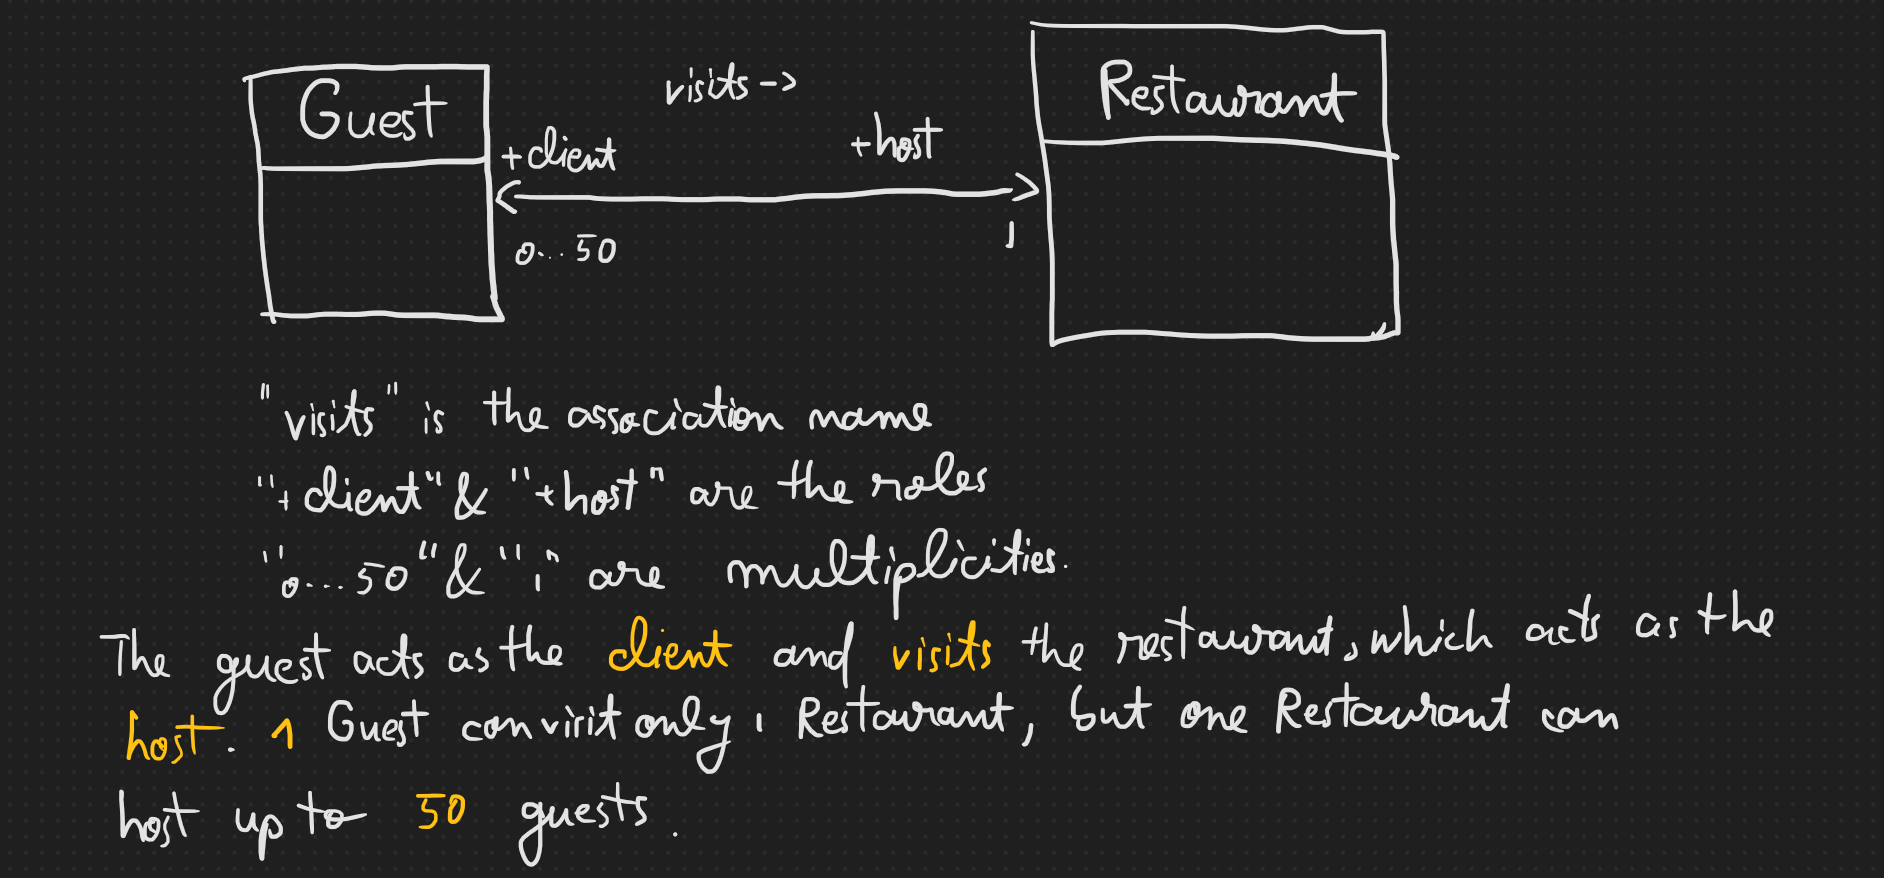 Guest
visits ->
Restaurant
+client
+host
0...50
1
"visits" is the association name
"+client" & "+host" are the roles
"0...50" & "1" are multiplicities.
The guest acts as the client and visits the restaurant, which acts as the
host. 1 Guest can visit only 1 Restaurant, but one Restaurant can
host up to 50 guests.